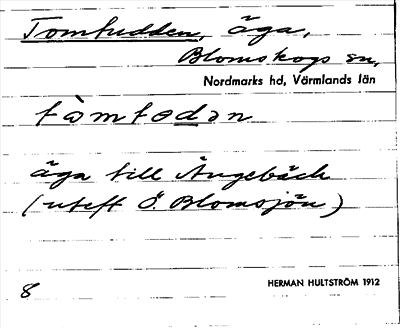 Tomtudden, äga,
Blomskogs sn,
Nordmarks hd, Värmlands län
tòmtodən
äga till Ängebäck
(uteft Ö. Blomsjön)
8 HERMAN HULTSTRÖM 1912